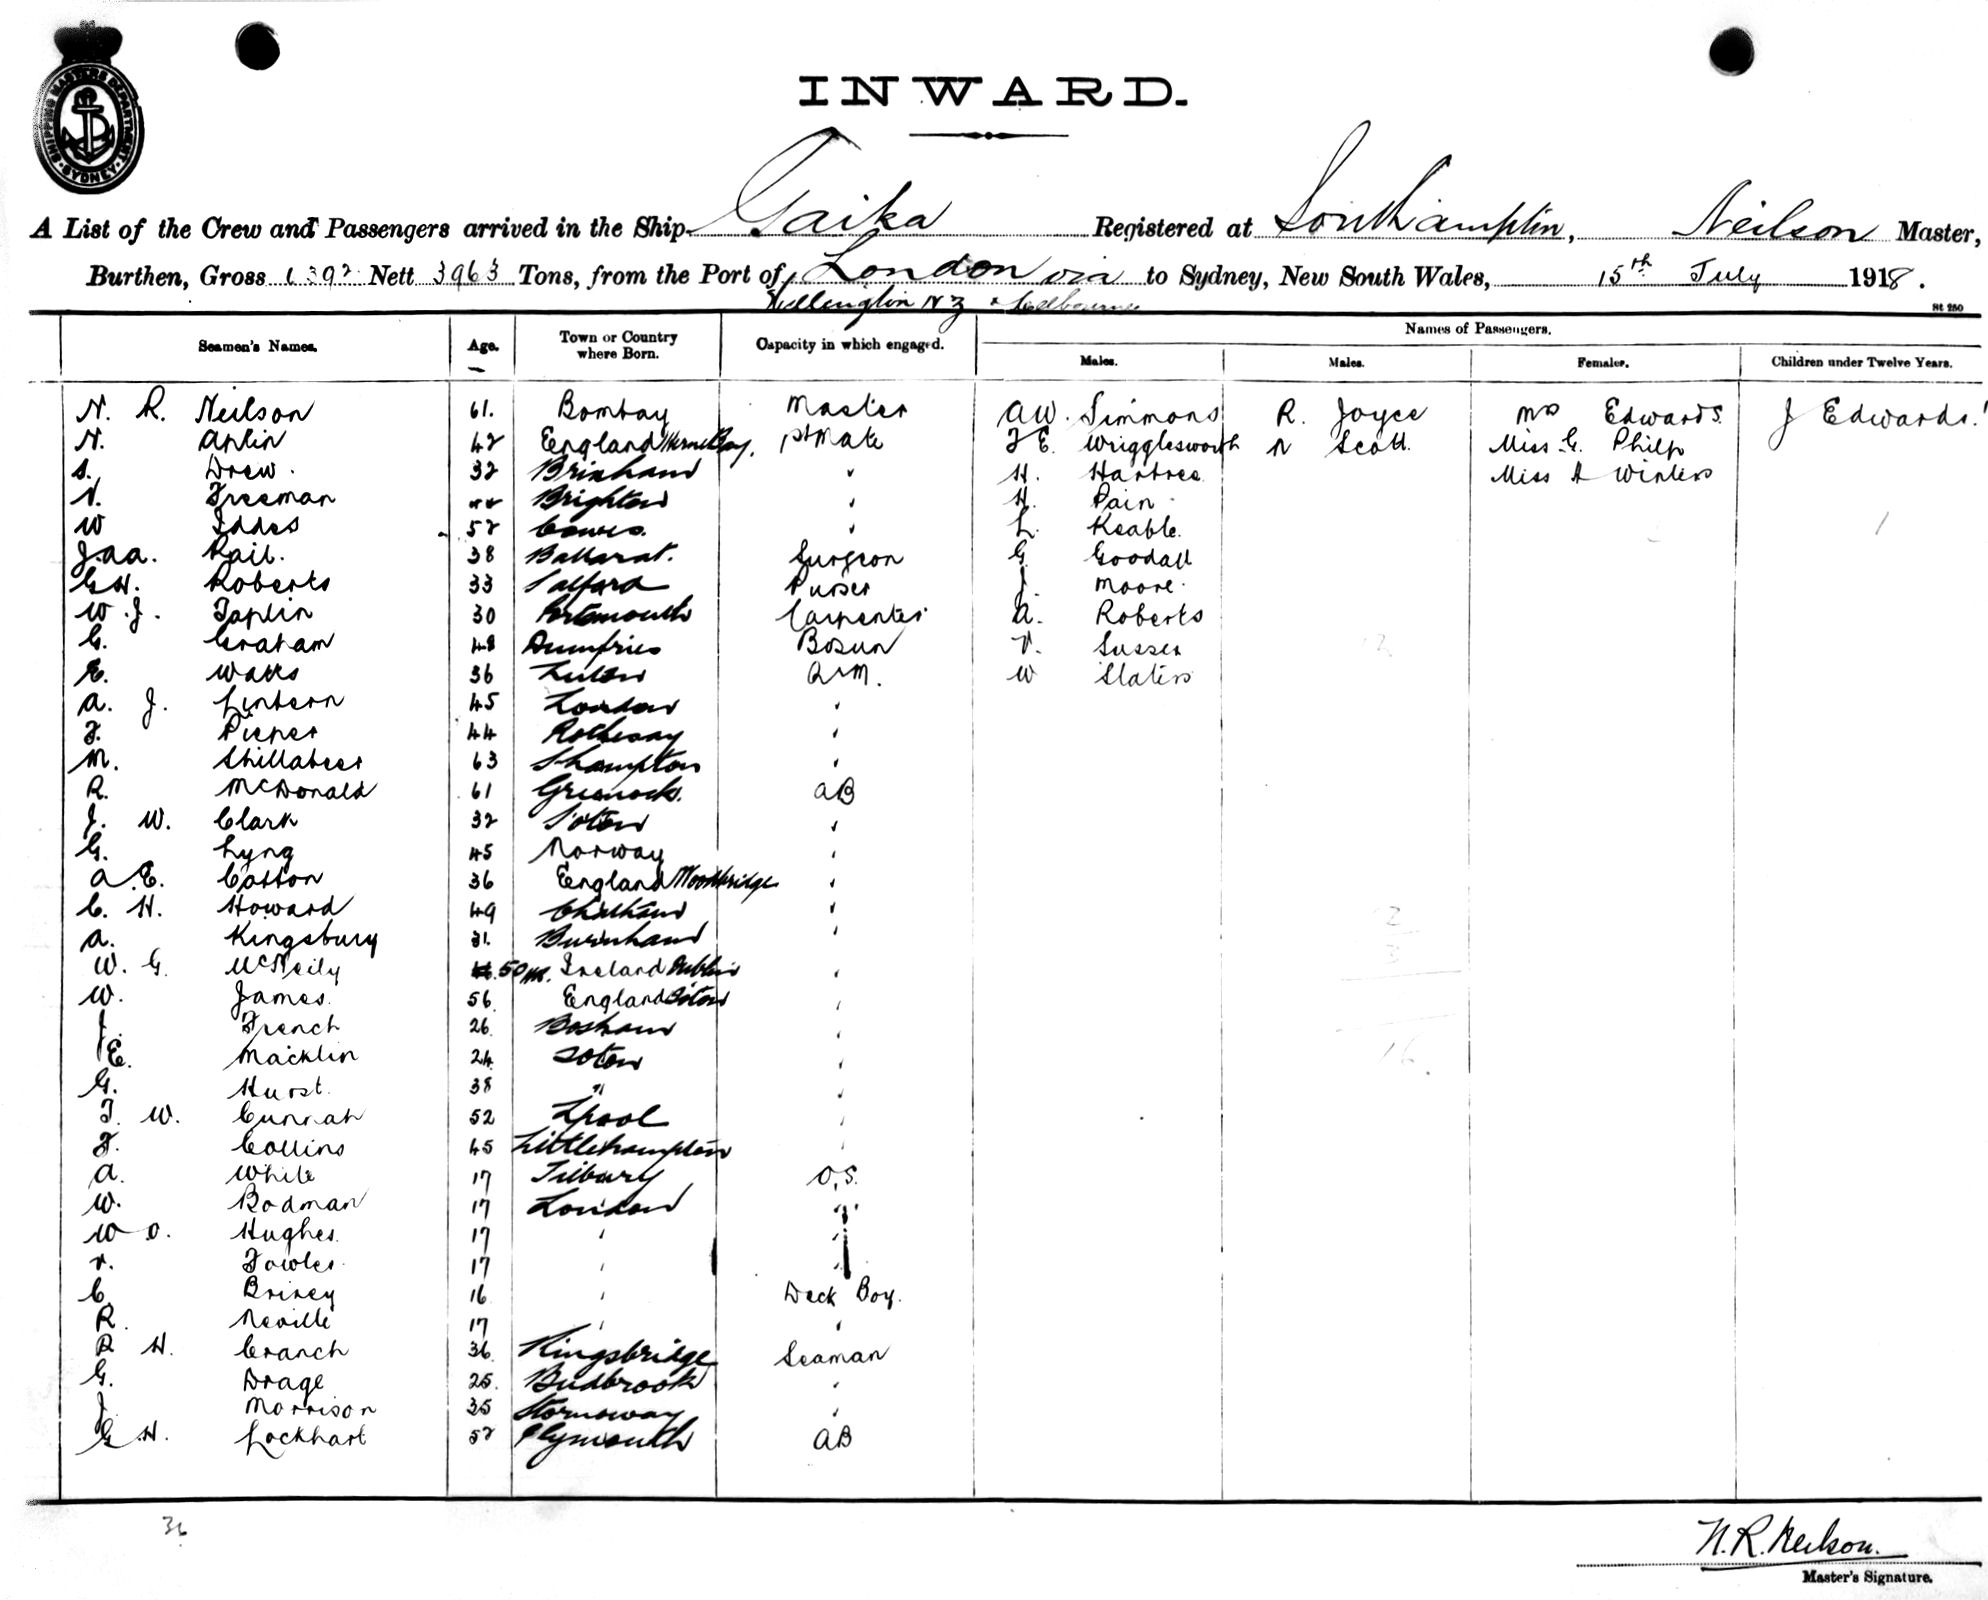 SHIPPING MASTERS DEPARTMENT SYDNEY
INWARD.
A List of the Crew and Passengers arrived in the Ship Gaika Registered at Southampton, Neilson Master,
Burthen, Gross 6392 Nett 3963 Tons, from the Port of London via to Sydney, New South Wales, 15th July 1918.
Wellington NZ & Melbourne
St 280
Names of Passengers.
Seamen's Names. Age. Town or Country where Born. Capacity in which engaged. Males. Males. Females. Children under Twelve Years.
N. R. Neilson 61. Bombay Master AW. Simmons R. Joyce Mrs Edwards. J Edwards.
N. Aplin 42 England Herne Bay. 1st Mate F E. Wrigglesworth N Scott. Miss G. Philp
S. Drew. 32 Brixham " H. Hartree Miss A Winters
N. Freeman Brighton " H. Pain
W Iddes 52 Cowes. " L. Keable.
J.AA. Rail. 38 Ballarat. Surgeon G. Goodall
GH. Roberts 33 Salford Purser J. Moore.
W. J. Taplin 30 Portsmouth Carpenter A. Roberts
G. Graham 48 Dumfries Bosun V. Sussex
E. Watts 36 Luton Q M. W Slaters
A. J. Lintern 45 London "
F. Pieper 44 Rothesay "
M. Shillabeer 63 Shampton "
R. McDonald 61 Greenock. AB
J. W. Clark 32 Soton "
G. Lyng 45 Norway "
A.E. Catton 36 England Woodbridge "
C. H. Howard 49 Chatham "
A. Kingsbury 31. Burnham "
W. G. McNeily 50 Ireland Dublin "
W. James. 56 England Soton "
J. French 26 Bosham "
E. Macklin 24 Soton "
G. Hurst. 38 " "
T. W. Cunnah 52 Lpool "
F. Collins 45 Littlehampton "
A. White 17 Tilbury O.S.
W. Bodman 17 London "
W O. Hughes. 17 " "
V. Fowler. 17 " "
C. Brixey 16 " Deck Boy.
R. Neville 17 " "
R H. Cranch 36 Kingsbridge Seaman
G. Drage 25. Budbrook "
J. Morrison 35 Stornoway "
G H. Lockhart 52 Plymouth AB
36
N.R. Neilson.
Master's Signature.